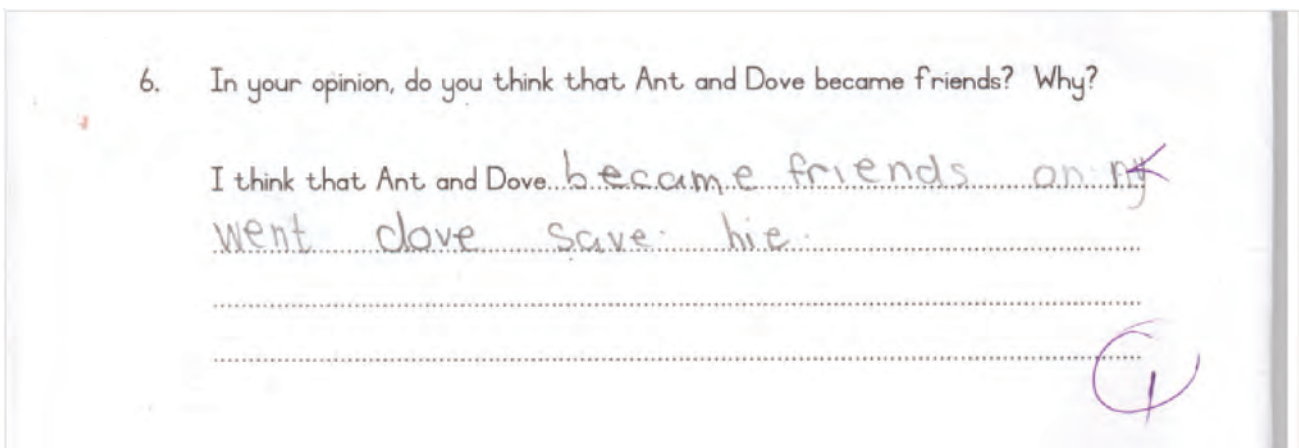 6. In your opinion, do you think that Ant and Dove became friends? Why?
I think that Ant and Dove became friends on ny
went dove save hie.
1